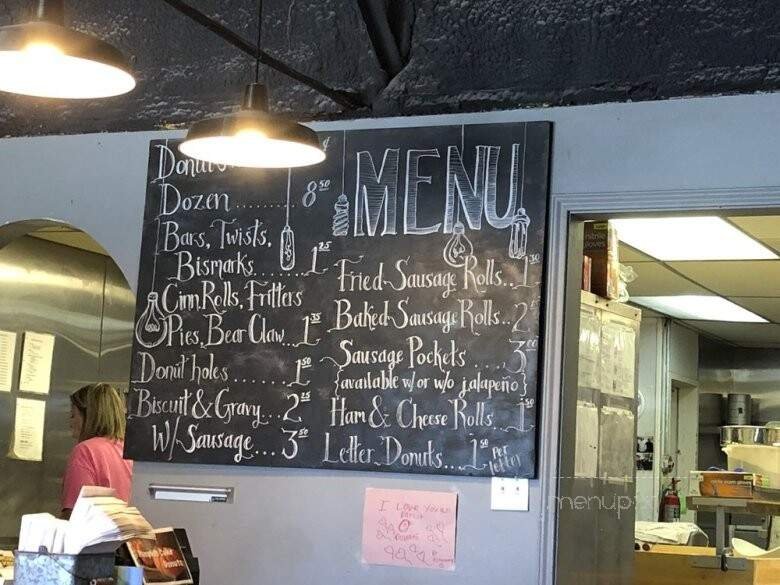 MENU
Dozen ........ 8⁵⁰
Bars, Twists,
Bismarks ..... 1²⁵
Cinn.Rolls, Fritters
Pies, Bear Claw... 1³⁵
Donut holes ...... 1⁵⁰
Biscuit & Gravy... 2²⁵
w/ Sausage.... 3⁵⁰
Fried Sausage Rolls..
Baked Sausage Rolls..
Sausage Pockets ....
{available w/ or w/o jalapeño}
Ham & Cheese Rolls...
Letter Donuts... 1⁵⁰ per
letter
I Love You
nitrile
gloves
menupix